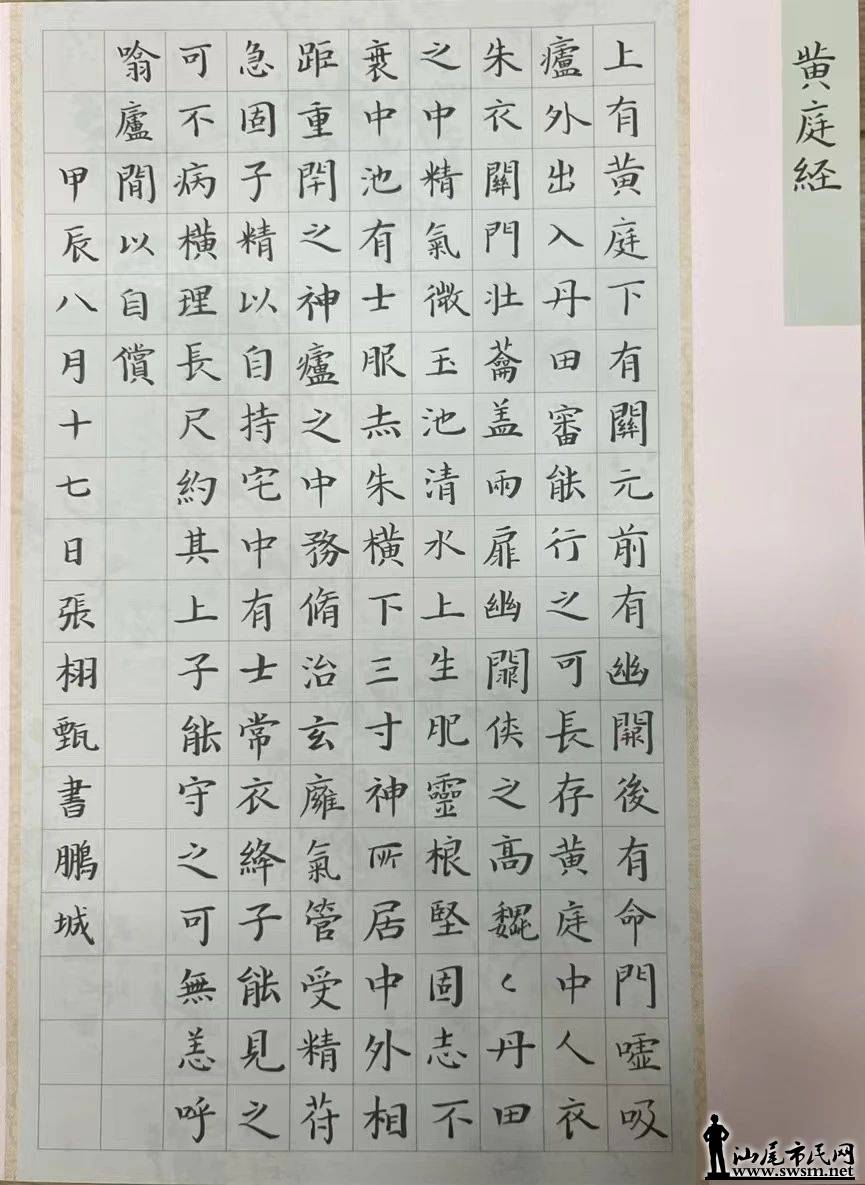 黄庭経
上有黄庭下有關元前有幽闕後有命門嘘吸
廬外出入丹田審能行之可長存黄庭中人衣
朱衣關門壯蘥盖兩扉幽闕俠之高巍〻丹田
之中精氣微玉池清水上生肥靈根堅固志不
衰中池有士服赤朱橫下三寸神所居中外相
距重閇之神廬之中務脩治玄廱氣管受精苻
急固子精以自持宅中有士常衣絳子能見之
可不病橫理長尺約其上子能守之可無恙呼
噏廬間以自償
甲辰八月十七日張栩甄書鵬城
汕尾市民网
www.swsm.net